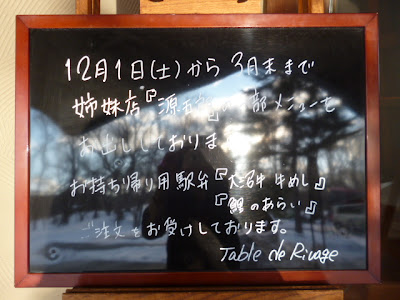 12月1日(土)から 3月末まで
姉妹店『源五郎』の一部メニューを
お出ししております。
お持ち帰り用駅弁『大沼牛 牛めし』
『鯉のあらい』
ご注文をお受けしております。
Table de Rivage